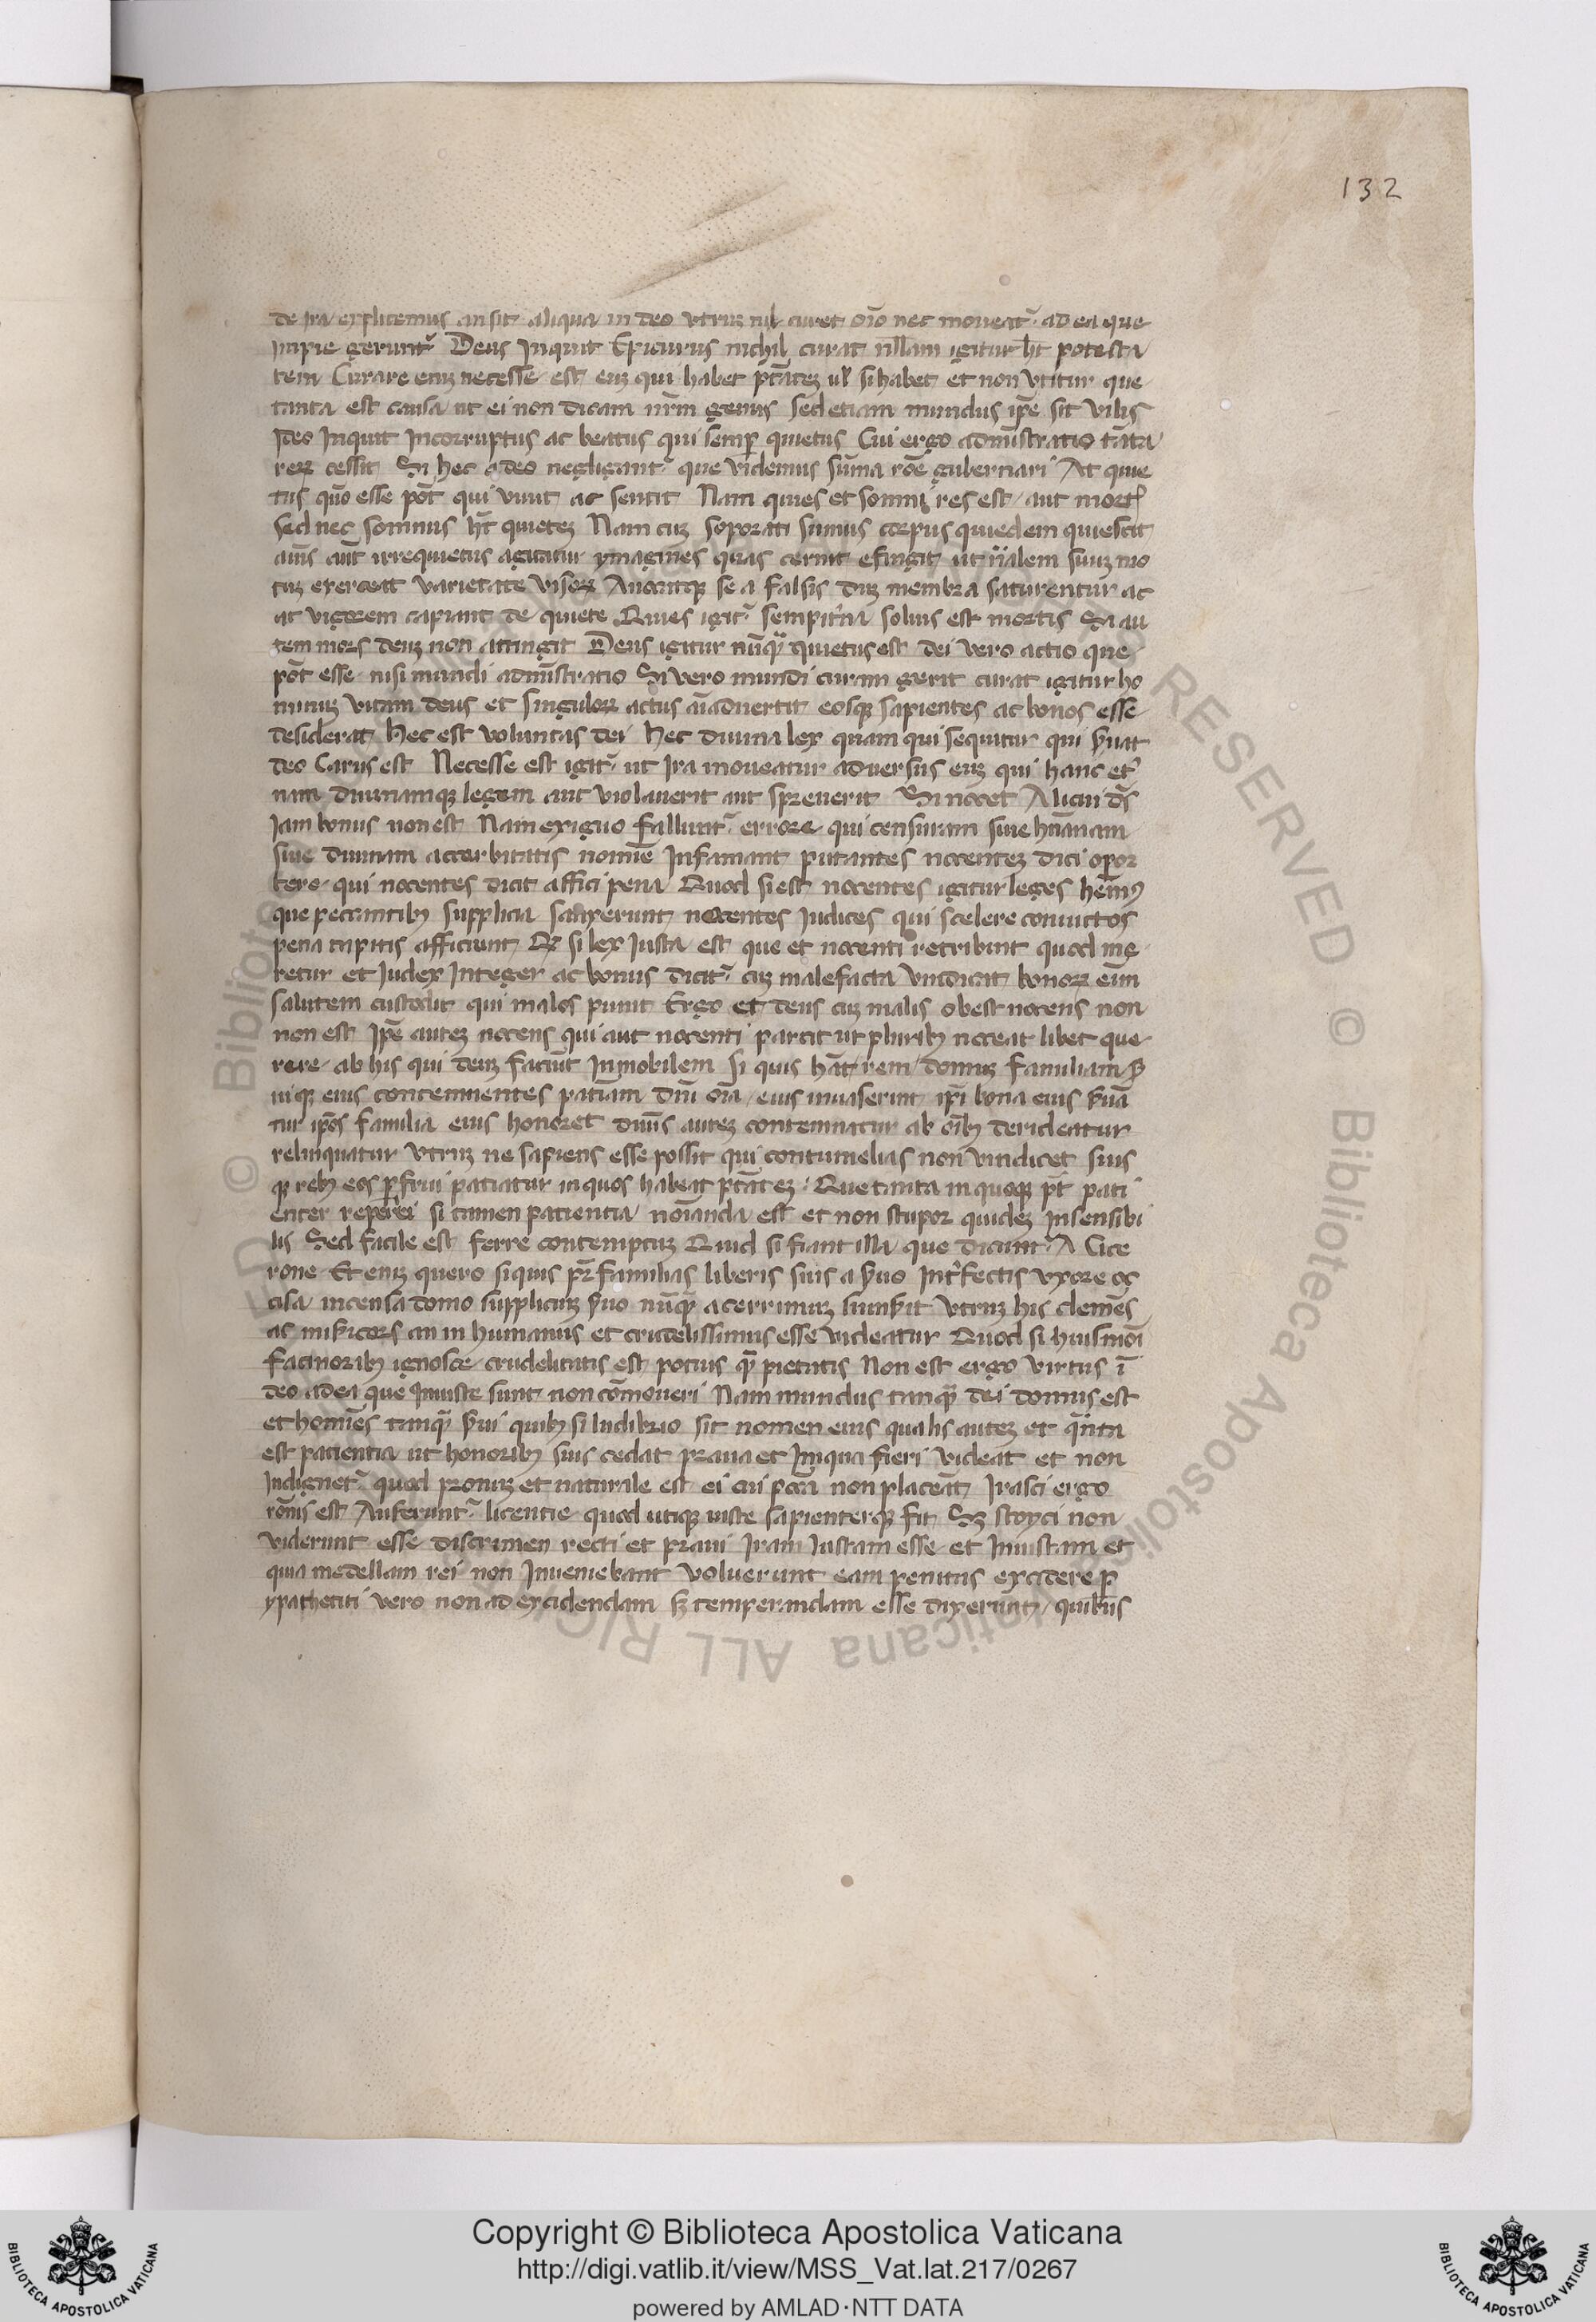 132
de ira explicemus an sit aliqua in deo utrum nil curet oīo nec moueat̄ ad ea que
impie gerunt̄ Deus Inquit Epicurus nichil curat nllam igitur ħt potesta
tem Curare enim necesse est eum qui habet ptātem ul si habet et non utitur que
tanta est causa ut ei non dicam nrm̄ genus sed etiam mundus ipē sit uilis
Ideo Inquit Incorruptus ac beatus qui semp̄ quietus Cui ergo admīstratio tāta
rerum cessit Si hec a deo negligant̄ que uidemus sūma rōe gubernari At quie
tus quō esse pōt qui uiuit ac sentit Nam quies et somni res est aut mort̄
Sed nec somnus ħt quietem Nam cum soporati sumus corpus quiedem quiescit
aīus aūt irrequietus agitatur ymagines quas cernit efingit ut nālem suum mo
tum exerceat uarietate uisorum Auocatque se a falsis dum membra saturentur ac
at uigorem capiant de quiete Quies igit̄ sempit̄na solius est mortis Si au
tem mors deum non attingit Deus igitur nūqͣ quietus est dei uero actio que
pōt esse nisi mundi admīstratio Si uero mundi curam gerit curat igitur ho
minum uitam deus et singulorum actus aīaduertit eosque sapientes ac bonos esse
desiderat Hec est uoluntas dei Hec diuina lex quam qui sequitur qui s̄uat
deo Carus est Necesse est igit̄ ut Ira moueatur aduersus eum qui hanc et̄
nam diuinamque legem aut uiolauerit aut spreuerit Si nocet Alicui ds̄
Iam bonus non est Nam exiguo fallunt̄ errore qui censuram siue hūanam
siue diuinam accerbitatis nomīe Infamant putantes nocentem dici opor
tere qui nocentes dicit affici pena Quod si est nocentes igitur leges hēmus
que peccantibus supplicia sanxerunt nocentes Iudices qui scelere conuictos
pena capitis afficiunt Qͣ si lex Iusta est que et nocenti retribuit quod me
retur et Iudex Integer ac bonus dicit̄ cum malefacta uindicat bonorum enim
salutem custodit qui malos punit Ergo et deus cum malis obest nocens non
non est Ipē autem nocens qui aut nocenti parcit ut pluribus noceat libet que
rere ab his qui deum faciūt Inmobilem si quis hāt rem domum familiam s̄
uique eius contemnentes patiām dnī oīa eius inuaserint ipī bona eius s̄uā
tur ipōs familia eius honoret dnūs autem contemnatur ab oībus derideatur
relinquatur utrum ne sapiens esse possit qui contumelias non uindicet suis
que rebus eos pfrui patiatur in quos habeat ptātem Que tanta in quoque pt̄ pati
enter reperiri si tamen patientia noīanda est et non stupor quidem Insensibi
lis Sed facile est ferre contemptum Quid si fiant illa que dicunt̄ A Cice
rone Et enim quero si quis pr̄familias liberis suis a s̄uo Int̄fectis uxore oc
cisa incensa domo supplicium s̄uo nūqͣ acerrimum sumpsit utrum his clemēs
ac misericors an in humanus et crudelissimus esse uideatur Quod si huiusmōi
facinoribus ignosce crudelitatis est potius qͣ pietatis Non est ergo uirtus ī
deo ad ea que Iniuste sunt non cōmoueri Nam mundus tanqͣ dei domus est
et homīes tanqͣ s̄ui quibus si ludibrio sit nomen eius qualis autem et qͣnta
est patientia ut honoribus suis cedat praua et Iniqua fieri uideat et non
Indignet̄ quod pronum et naturale est ei cui pccā non placeāt Irasci ergo
rōnis est Auferunt̄ licentie quod utique iuste sapienterque fit Sed stoyci non
uiderunt esse discrimen recti et praui Iram Iustam esse et Iniustam et
quia medellam rei non Inueniebant uoluerunt eam penitus excidere p
ypathetiti uero non ad excidendam sed temperandam esse dixerunt quibus
Copyright © Biblioteca Apostolica Vaticana
http://digi.vatlib.it/view/MSS_Vat.lat.217/0267
powered by AMLAD·NTT DATA
BIBLIOTECA APOSTOLICA VATICANA
BIBLIOTECA APOSTOLICA VATICANA